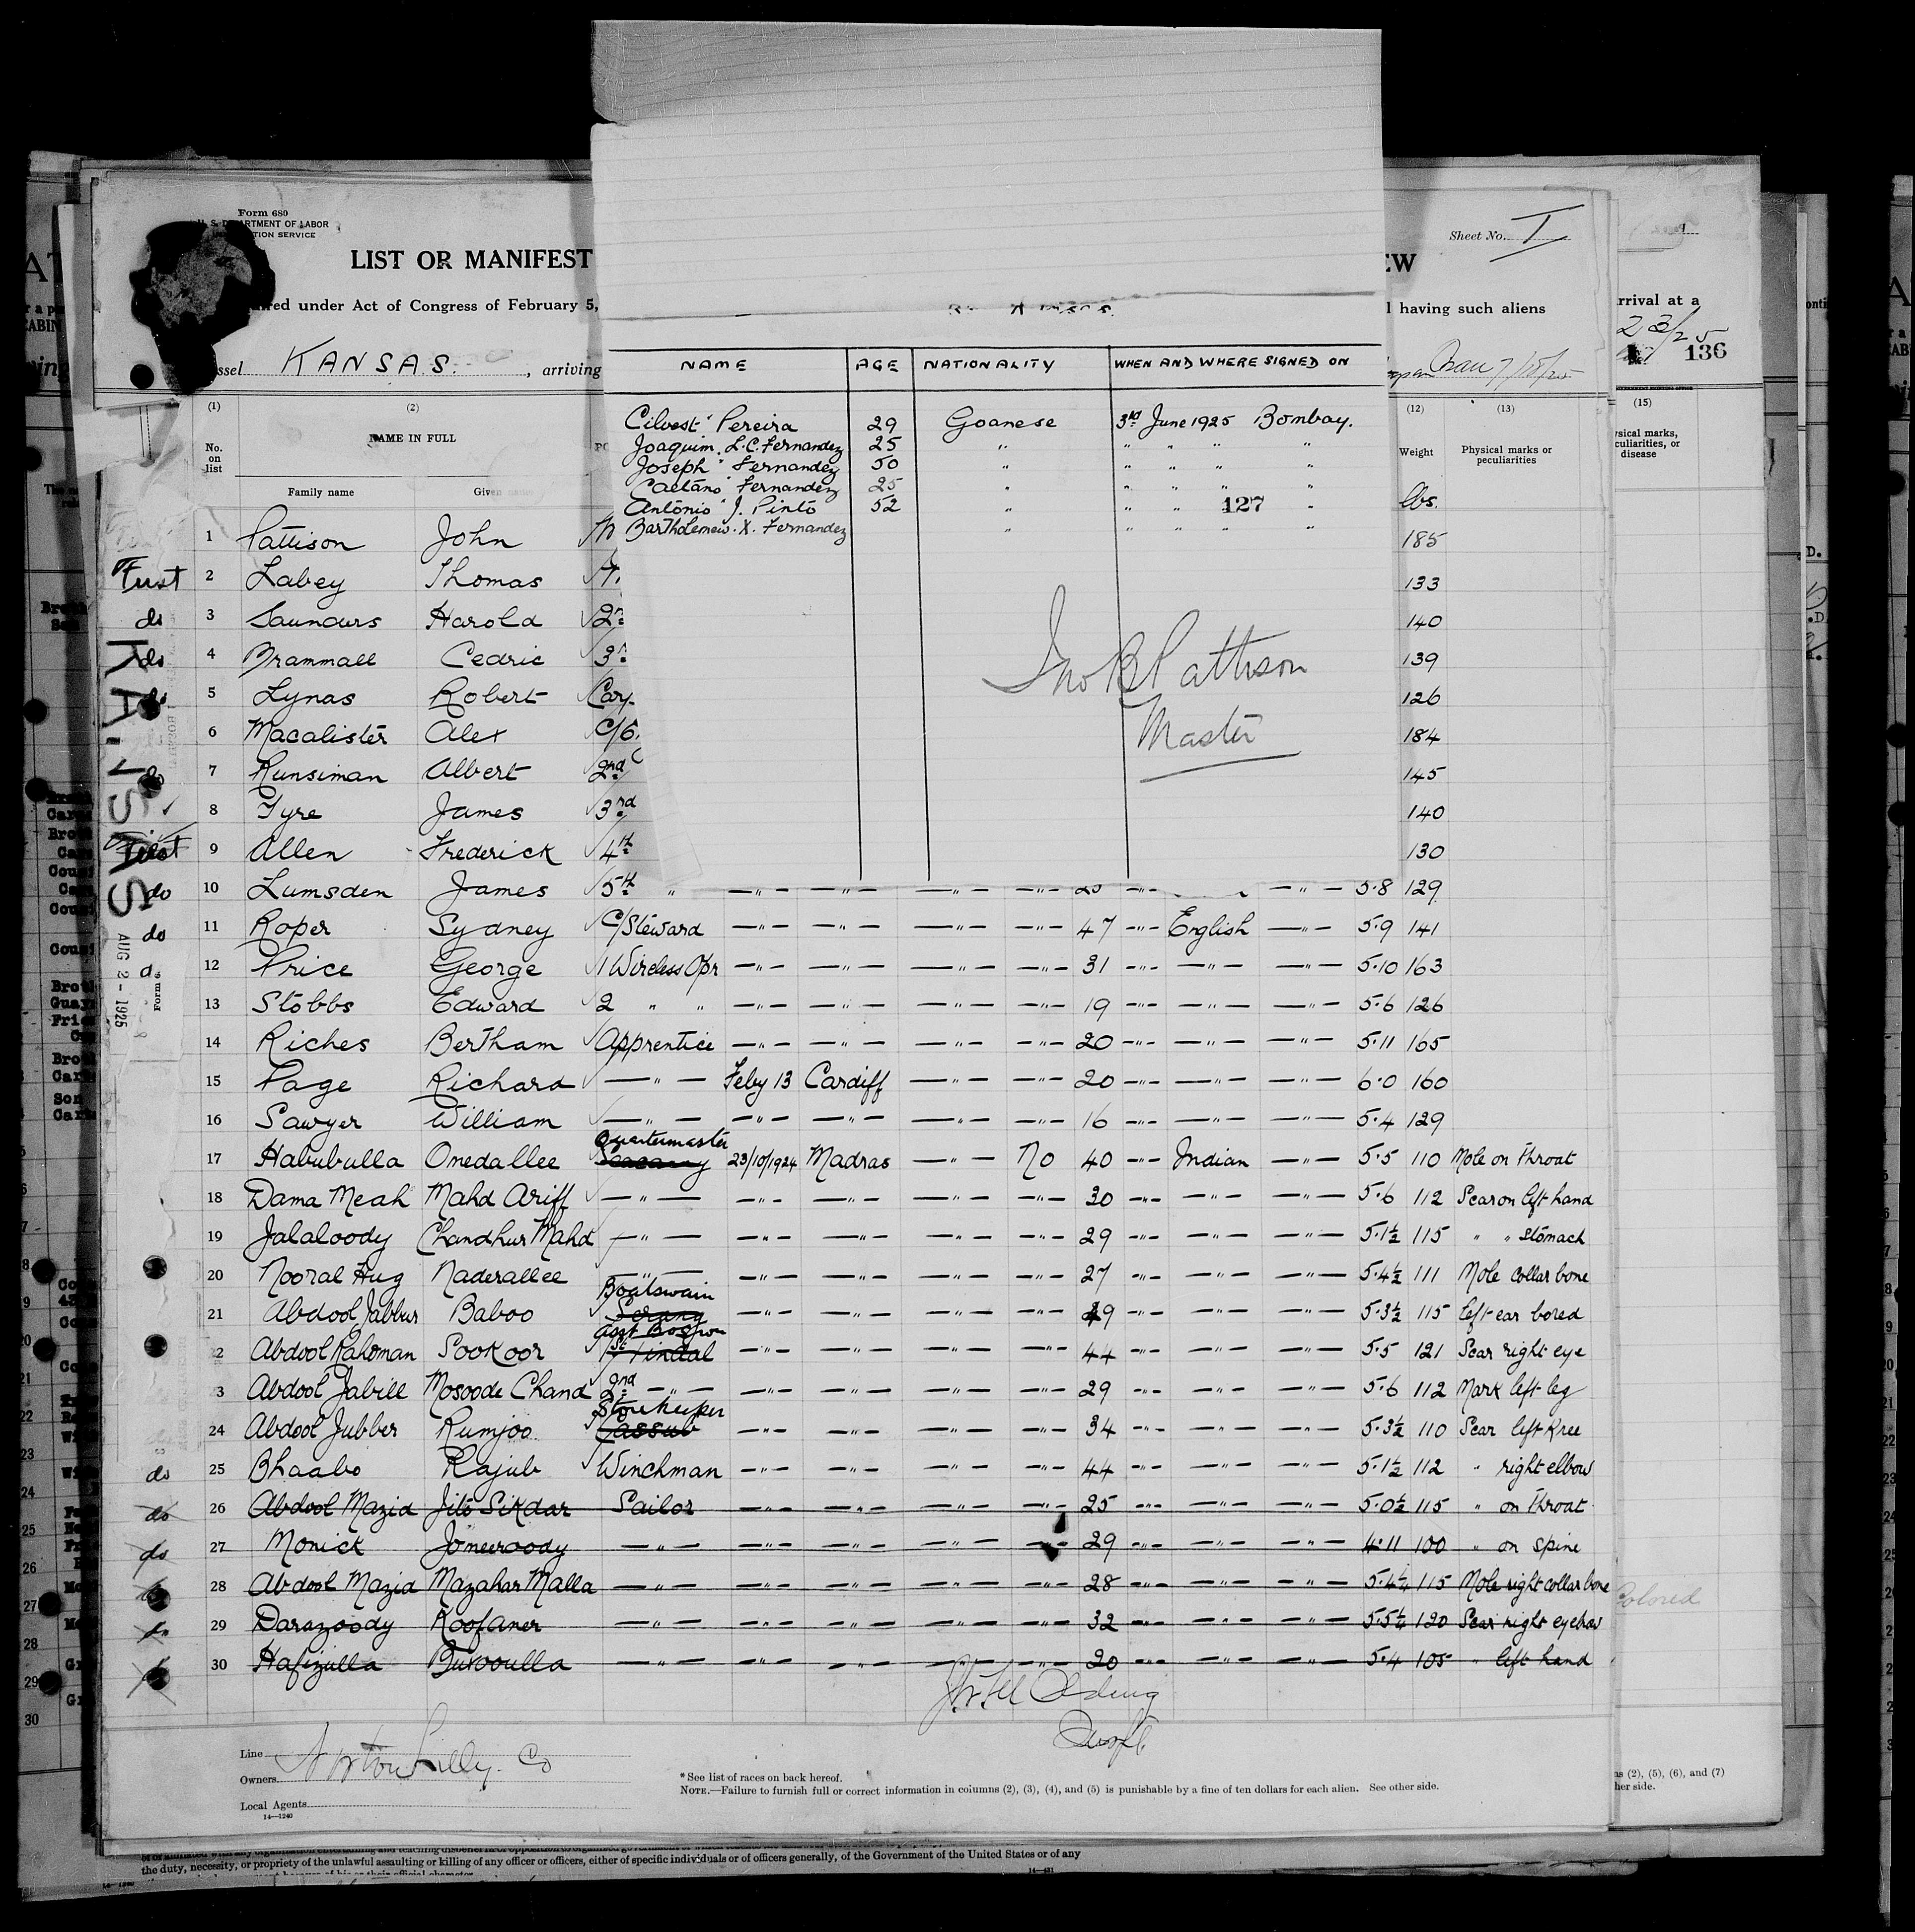 Form 680
U. S. DEPARTMENT OF LABOR
LIST OR MANIFEST
EW
Sheet No. I
red under Act of Congress of February 5,
l having such aliens
rrival at a
ssel KANSAS. , arriving
136
(1) (2) (12) (13) (15)
No. on list
NAME IN FULL
Family name Given name
Weight
Physical marks or peculiarities
sical marks,
culiarities, or
disease
NAME AGE NATIONALITY WHEN AND WHERE SIGNED ON
Cilvest Pereira 29 Goanese 3rd June 1925 Bombay.
Joaquim. L.C. Fernandez 25 " " " " "
Joseph Fernandez 50 " " " " "
Caetano Fernandez 25 " " " " "
Antonio J. Pinto 52 " " " 127 "
Bartholemew. X. Fernandez " " " " "
Jno B Pattison
Master
lbs.
1 Pattison John 185
2 Labey Thomas 133
3 Saunders Harold 2nd 140
4 Brammall Cedric 3rd 139
5 Lynas Robert Car 126
6 Macalister Alex 184
7 Runsiman Albert 2nd 145
8 Tyre James 3rd 140
9 Allen Frederick 4th 130
10 Lumsden James 5th " —"— —"— —"— —"— —"— —"— 5.8 129
11 Roper Sydney C/Steward —"— —"— —"— —"— 47 —"— English —"— 5.9 141
12 Price George 1 Wireless Opr —"— —"— —"— —"— 31 —"— —"— —"— 5.10 163
13 Stobbs Edward 2 " " —"— —"— —"— —"— 19 —"— —"— —"— 5.6 126
14 Riches Bertham Apprentice —"— —"— —"— —"— 20 —"— —"— —"— 5.11 165
15 Page Richard —"— Feby 13 Cardiff —"— —"— 20 —"— —"— —"— 6.0 160
16 Sawyer William —"— —"— —"— —"— —"— 16 —"— —"— —"— 5.4 129
Quartermaster
17 Habubulla Omedallee Seacunny 23/10/1924 Madras —"— No 40 —"— Indian —"— 5.5 110 Mole on throat
18 Dama Meah Mahd Ariff —"— —"— —"— —"— —"— 30 —"— —"— —"— 5.6 112 Scar on left hand
19 Jalaloody Chandhur Mahd —"— —"— —"— —"— —"— 29 —"— —"— —"— 5.1½ 115 " " stomach
20 Nooral Hug Naderallee —"— —"— —"— —"— —"— 27 —"— —"— —"— 5.4½ 111 Mole collar bone
Boatswain
21 Abdool Jabbur Baboo Serang —"— —"— —"— —"— 49 —"— —"— —"— 5.3½ 115 left ear bored
Asst Bosun
2 Abdool Rahoman Sookoor 1st Tindal —"— —"— —"— —"— 44 —"— —"— —"— 5.5 121 Scar right eye
3 Abdool Jabill Mosoode Chand 2nd —"— —"— —"— —"— —"— 29 —"— —"— —"— 5.6 112 Mark left leg
Storekeeper
24 Abdool Jubber Rumjoo Cassub —"— —"— —"— —"— 34 —"— —"— —"— 5.3½ 110 Scar left knee
25 Bhaabo Rajub Winchman —"— —"— —"— —"— 44 —"— —"— —"— 5.1½ 112 " right elbow
26 Abdool Mazid Jito Sikdar Sailor —"— —"— —"— —"— 25 —"— —"— —"— 5.0½ 115 " on throat
27 Monick Jomeeroody —"— —"— —"— —"— —"— 29 —"— —"— —"— 4.11 100 " on spine
28 Abdool Mazid Mazahar Malla —"— —"— —"— —"— —"— 28 —"— —"— —"— 5.4¼ 115 Mole right collar bone
29 Darazoody Koofaner —"— —"— —"— —"— —"— 32 —"— —"— —"— 5.5¼ 120 Scar right eyebrow
30 Hafizulla Buroolla —"— —"— —"— —"— —"— 20 —"— —"— —"— 5.4 105 " left hand
KANSAS
AUG 2 - 1925
Colored
Line
Owners Norton Lilly Co
Local Agents
14—1240
* See list of races on back hereof.
NOTE.—Failure to furnish full or correct information in columns (2), (3), (4), and (5) is punishable by a fine of ten dollars for each alien. See other side.
ns (2), (5), (6), and (7)
her side.
the duty, necessity, or propriety of the unlawful assaulting or killing of any officer or officers, either of specific individuals or of officers generally, of the Government of the United States or of any